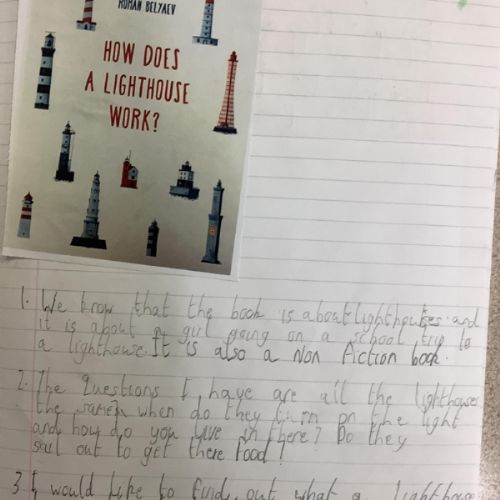 ROMAN BELYAEV
HOW DOES
A LIGHTHOUSE
WORK?
1. We know that the book is about lighthouses and
it is about a girl going on a school trip to
a lighthouse. It is also a Non Fiction book.
2. The Questions I have are all the lighthouses
the same? when do they turn on the light
and how do you live in there? Do they
sail out to get there food!
3. I would like to find out what a lighthouse